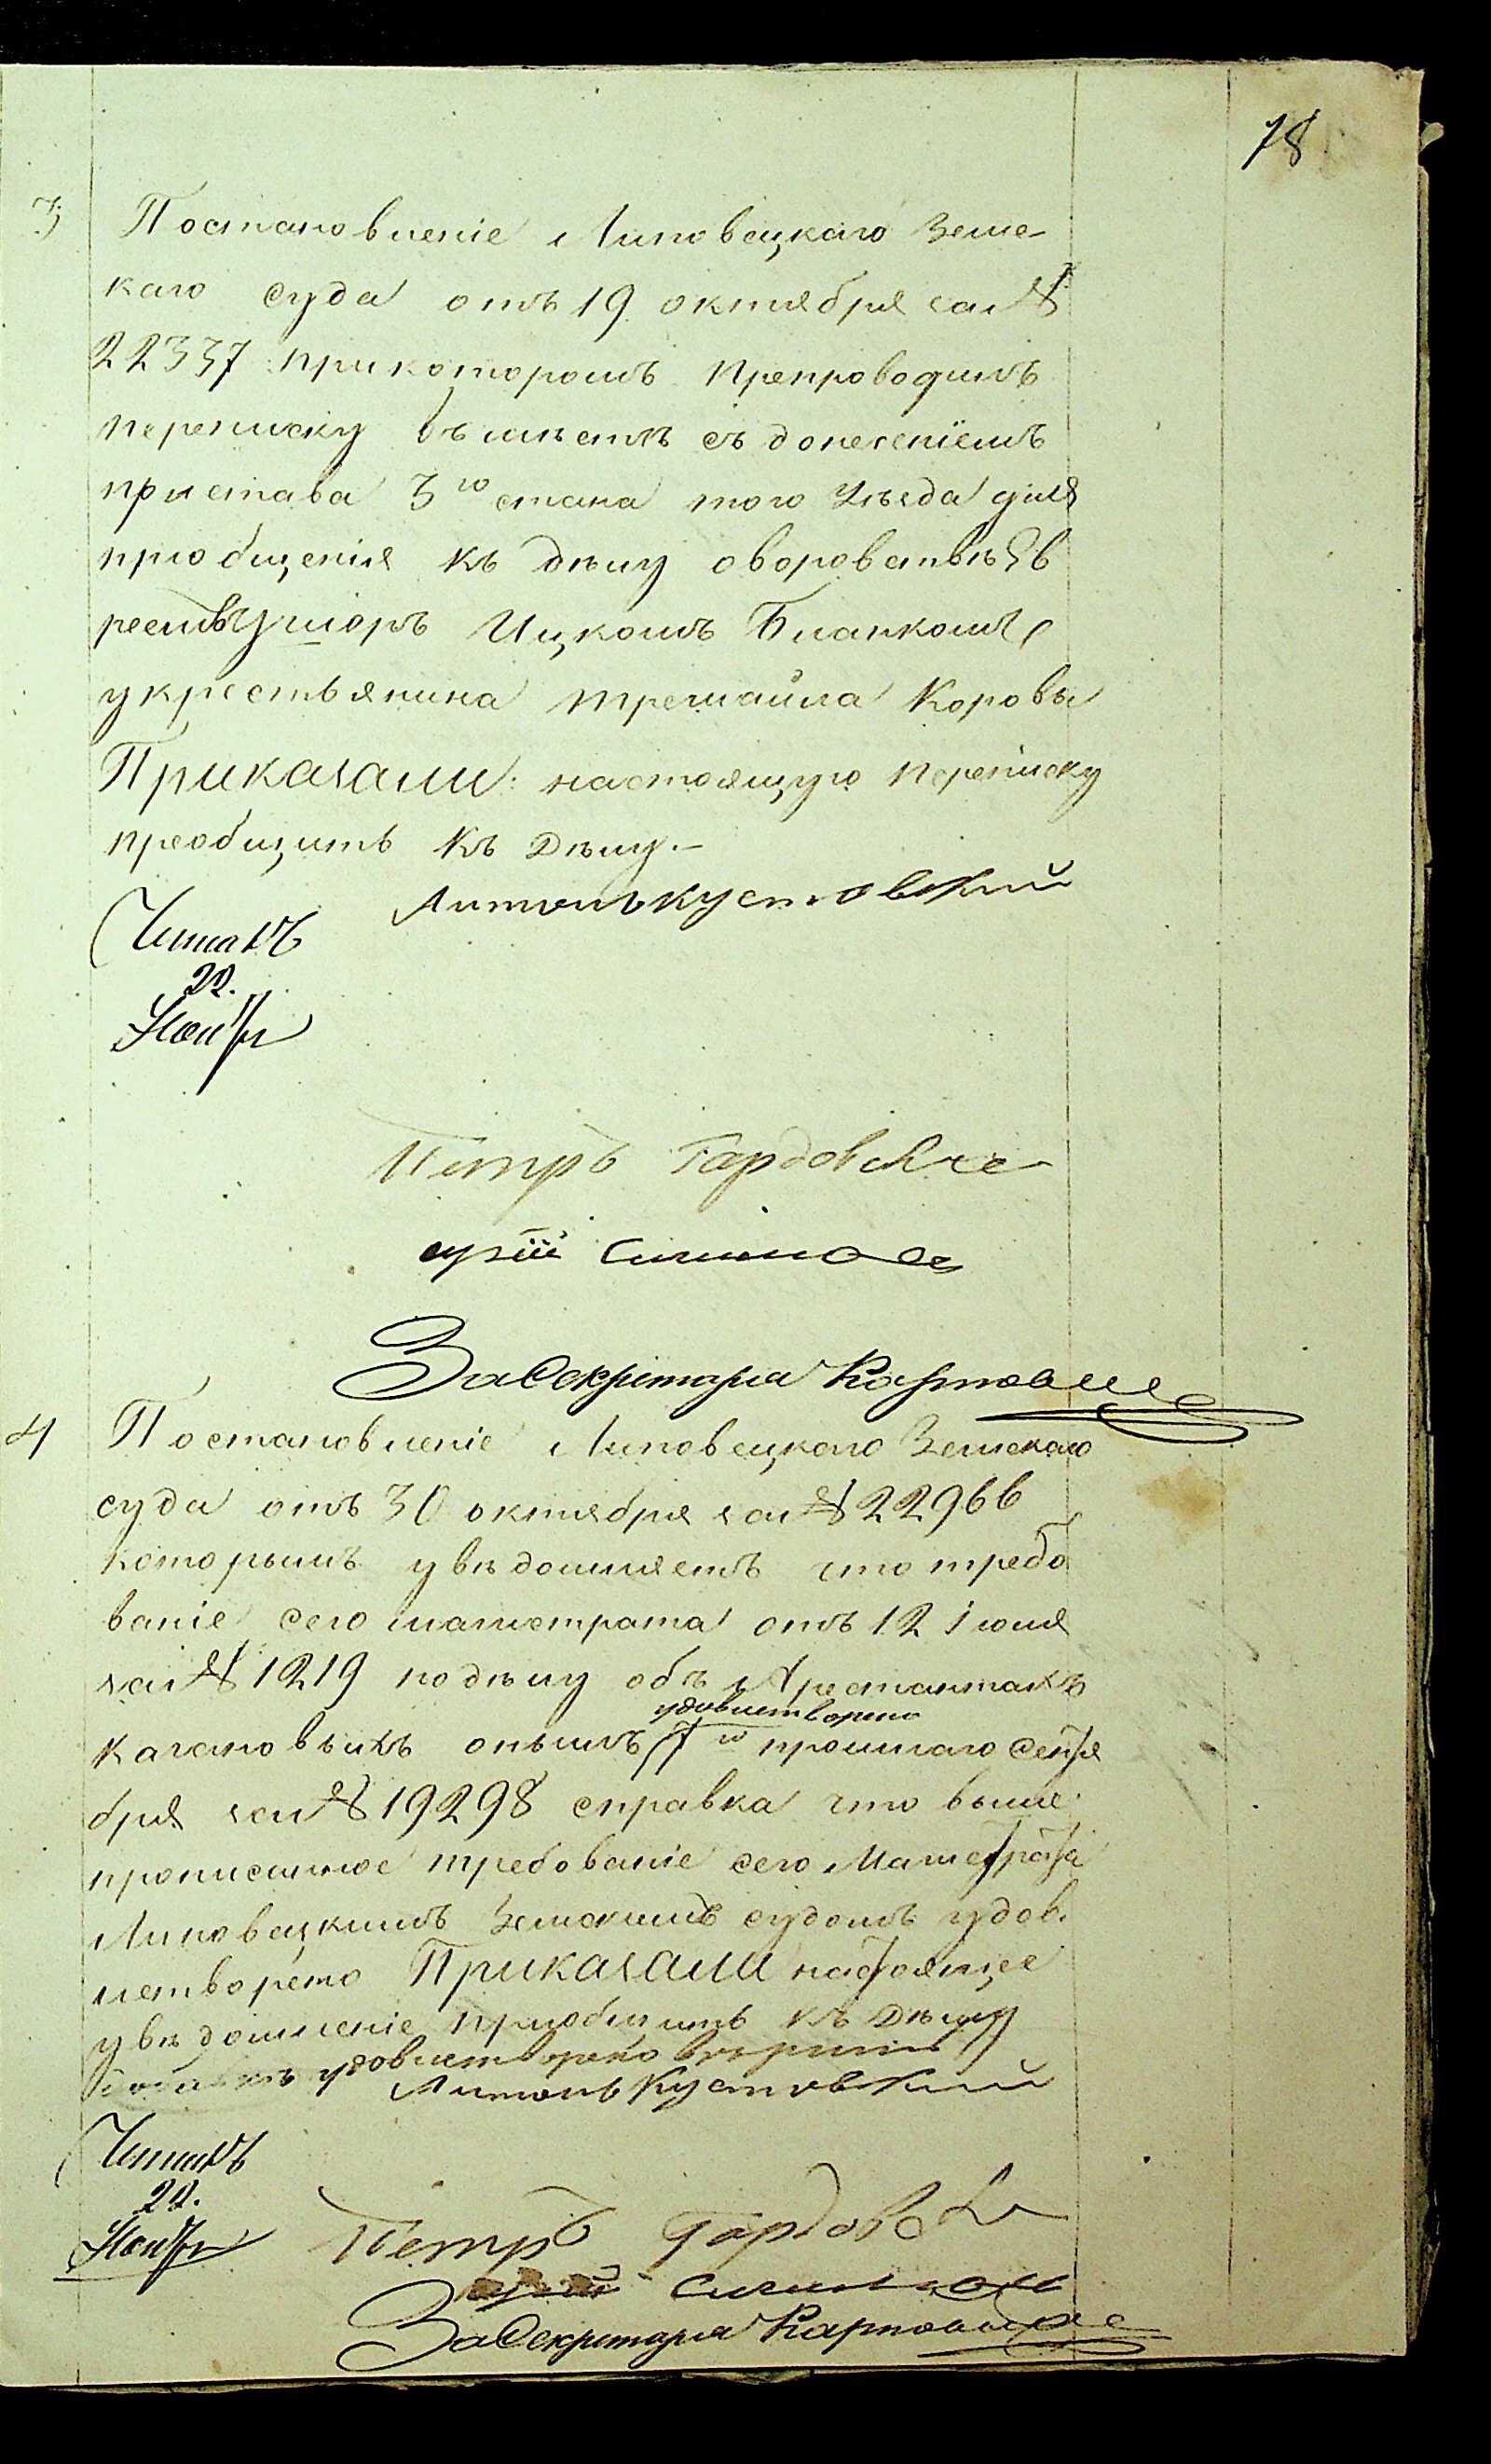 78
3 Постановленіе Липовецкаго Земс-
каго суда отъ 19 октября за №
22337 при которомъ Препроводилъ
переписку вмѣстѣ съ донесеніемъ
пристава 3го стана того Уѣзда для
пріобщенія къ дѣлу о воровствѣ Ев
реемъ Ицкомъ Бланкомъ
у крестьянина Коровы
Приказали: настоящую переписку
преобщить къ Дѣлу.-
Антонъ Кустовскій
Читалъ
22.
Нояб
Петръ Гардов
За Секретаря
4 Постановленіе Липовецкаго Земскаго
суда отъ 30 октября за № 22966
которымъ увѣдомляетъ что требо
ваніе сего магистрата отъ 12 іюля
за № 1219 по дѣлу объ Арестантахъ
удовлетворено
онымъ го прошлаго сентя
бря за № 19298 справка что выше
прописанное требованіе сего Магистрата
Липовецкимъ Земскимъ судомъ удов
летворено Приказали настоящее
увѣдомленіе пріобщить къ Дѣлу
удовлетворено
Антонъ Кустовскій
Читалъ
22.
Нояб
Петръ Гардов
За Секретаря